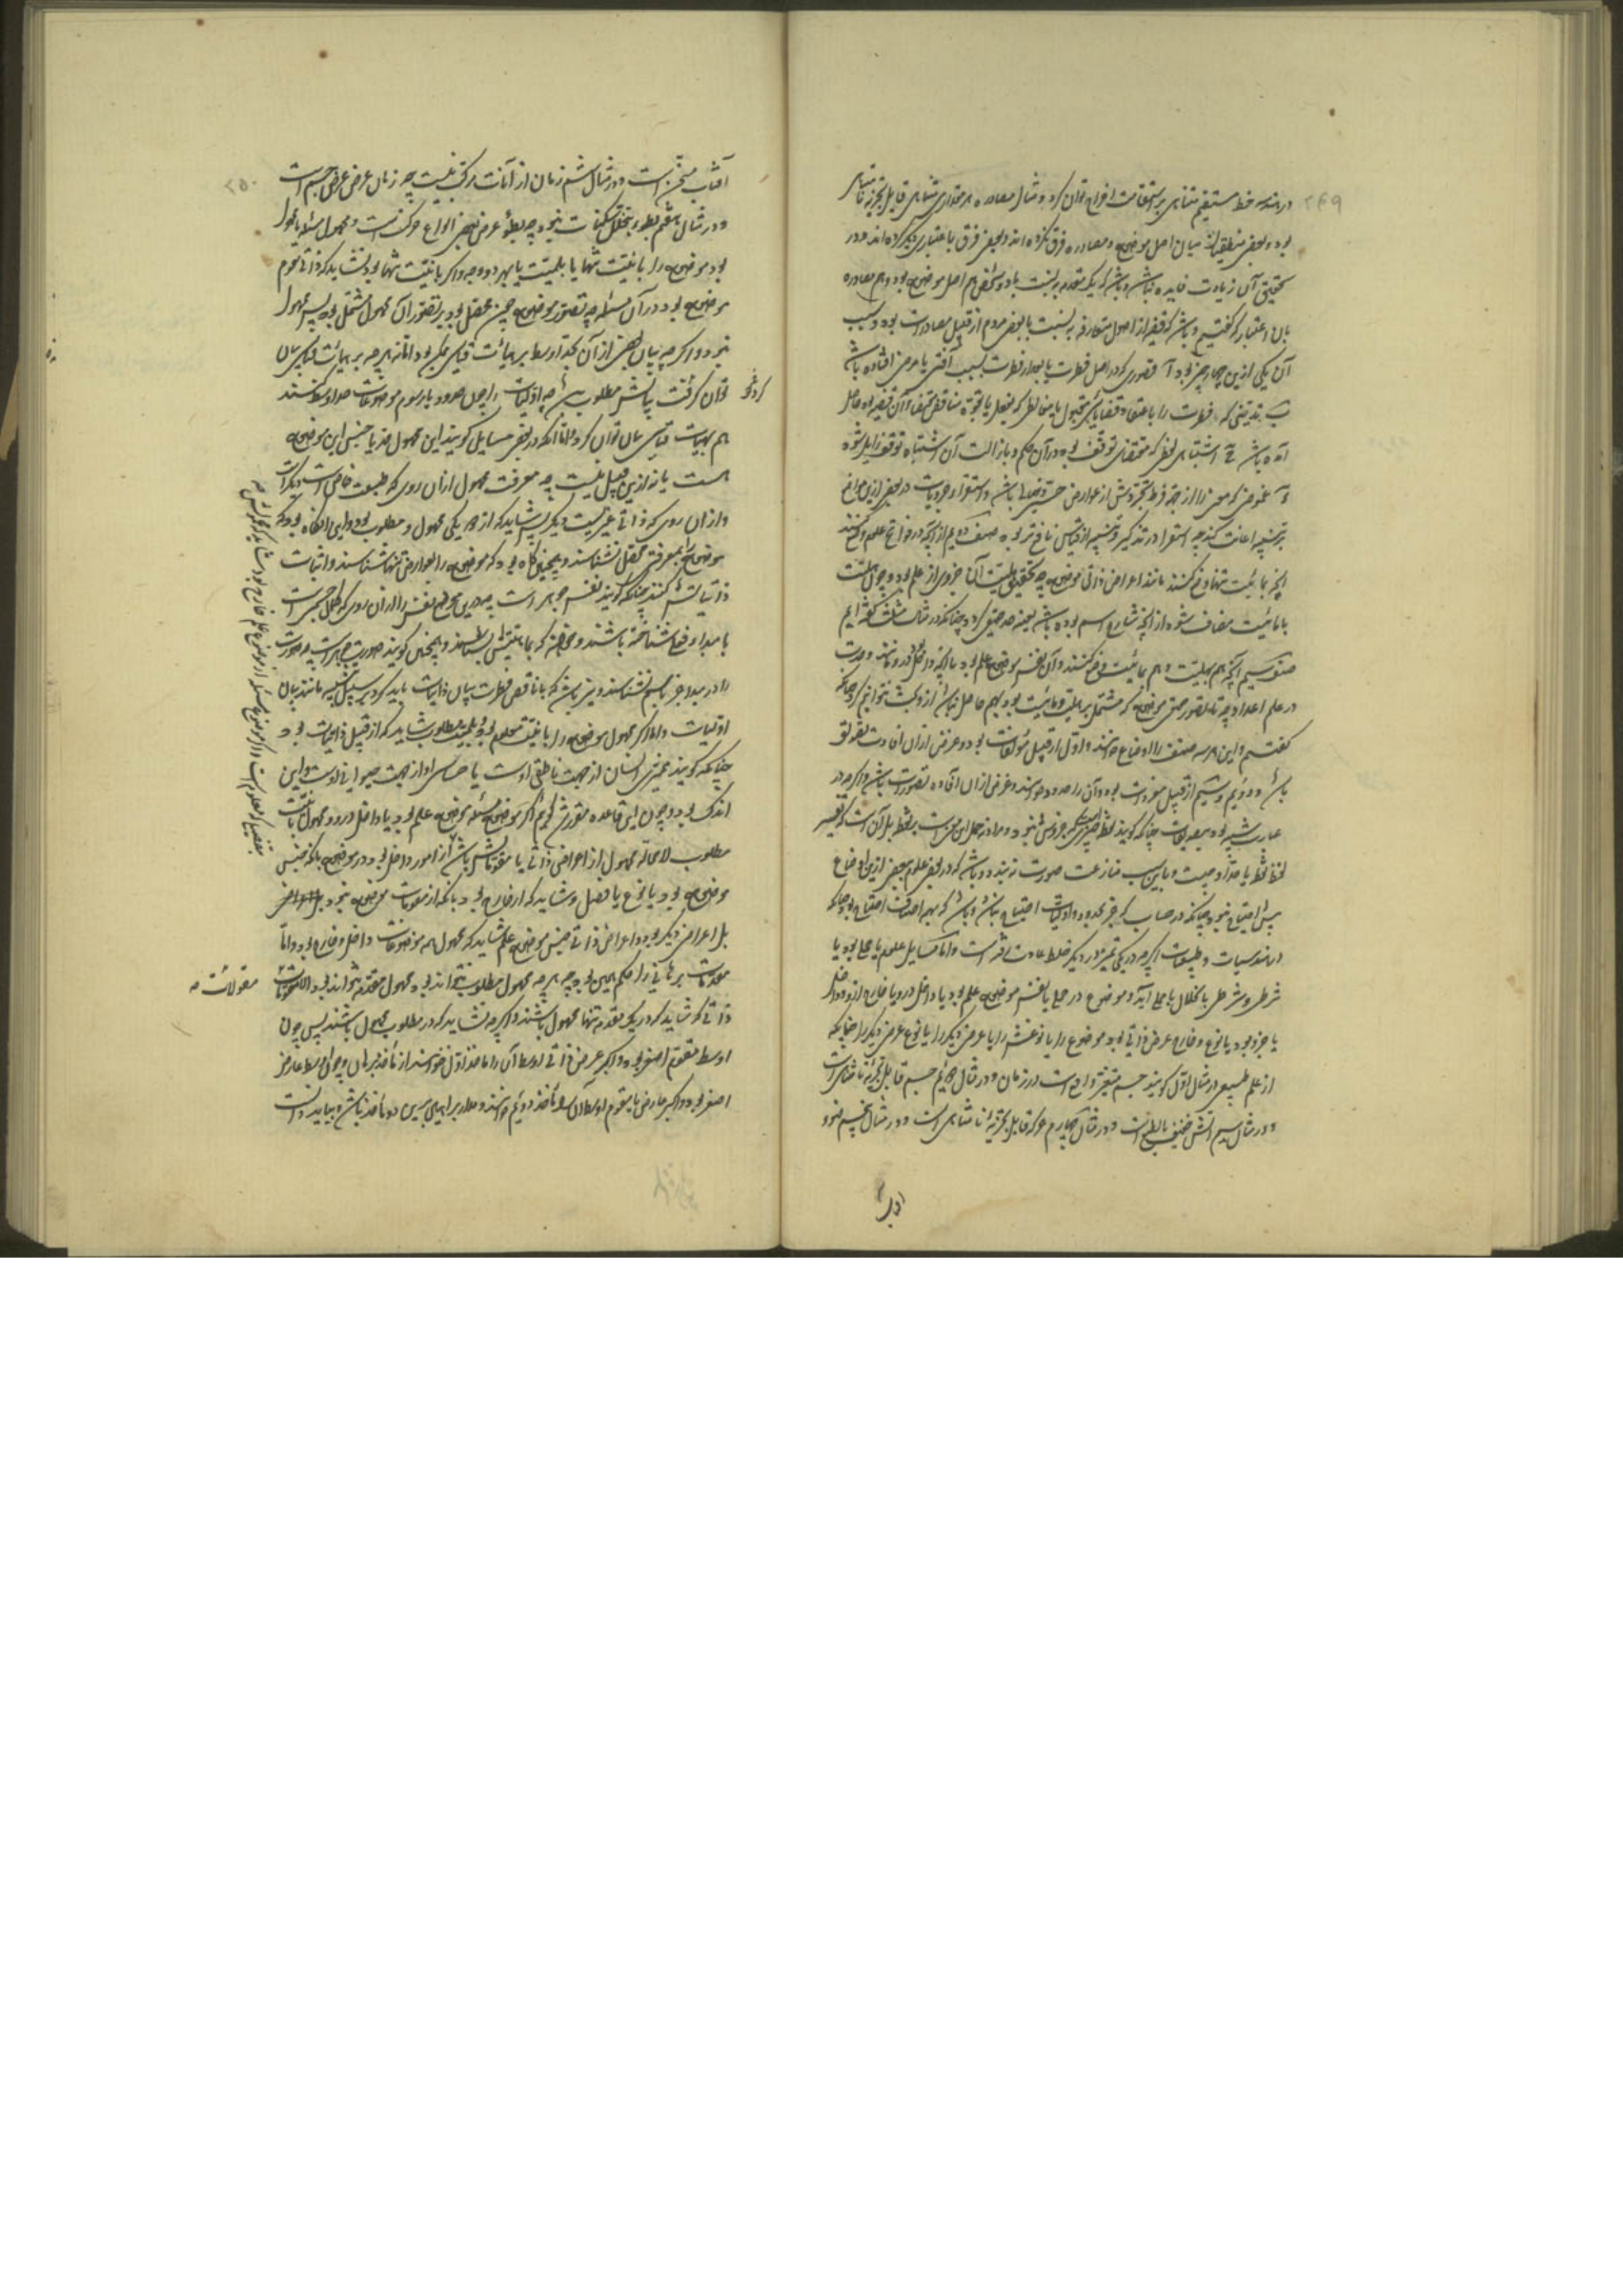 در هندسه خط مستقیم متناهی بر استقامت اخراج توان کرد و مثال مصادره هر مقداری متناهی قابل تجزیه نامتناهی
بود و بعضی منطقیان میان اصل موضوع و مصادره فرق نکرده‌اند و بعضی فرق باعتباری دیگر کرده‌اند و در
تحقیق آن زیادت فایده نباشد و باشد که یک مقدمه به نسبت با دو شخص هم اصل موضوع بود و هم مصادره
بآن اعتبار که گفتیم و باشد که قضیه از اصول متعارفه به نسبت با بعضی مردم از قبیل مصادرات بود و سبب
آن یکی ازین چهار چیز بود آ قصوری که در اصل فطرت یا بعد از فطرت بسبب آفتی یا مرضی افتاده باشد
ب تدنیسی که فطرت را باعتقاد قضایای متقبول یا مخالطی که بفعل یا بقوة مناقض مقتضاء آن قضیه بود حاصل
آمده باشد ج اشتباهی لفظی که مقتضی توقف بود در آن حکم و بازالت آن اشتباه توقف زایل شود
د غموضی که معنی را از جهة فرط تجردش از عوارض حسی و خیالی باشد و استقراء جزویات در بعضی ازین مواضع
بر تنبیه اعانت کند چه استقرا در تذکیر و تنبیه از قیاس نافع‌تر بود صنف دویم از آنچه در فواتح علوم وضع کنند
آنچه بمائیت تنها وضع کنند مانند اعراض ذاتی موضوع چه تحقیق هلیت آن جزوی از علم بود و چون هلیت
با مائیت مضاف شود از آنچه شارح اسم بوده باشد بعینه حد حقیقی گردد چنانکه در مثال مثلث گفته‌ایم
صنف سیم آنچه هم بهلیت و هم بمائیت وضع کنند و آن نفس موضوع علم بود یا آنچه داخل بود درو مانند وحدت
در علم اعداد چه تا تصور حقیقی موضوع که مشتمل بر هلیت و مائیت بود بهم حاصل نباشد ازو بحث نتوانیم کرد چنانکه
گفتیم و این هر سه صنف را اوضاع خوانند و اول از قبیل مؤلفات بود و غرض از آن افادت تصدیق
باشد و دویم و سیم از قبیل مفردات بود و آن را حدود خوانند و غرض از آن افاده تصورات باشد و اگر چه در
عبارت شبیه بود بتصدیقات چنانکه گویند نقطه چیزیست که جزوش نبود و مراد نه حمل این معنی است بر نقطه بل آنست که تفسیر
لفظ نقطه یا حد او چیست و باین سبب منازعت صورت نبندد و باشد که در بعضی علوم ببعضی ازین اوضاع
بیش احتیاج نبود چنانکه در حساب که جز بحدود و اولیات احتیاج نباشد و باشد که بهمه اصناف احتیاج بود چنانکه
در هندسیات و طبیعیات اگر چه در یکی تمیز و در دیگر خلط عادت رفته است و اما مسایل علوم یا حملی بود یا
شرطی و شرطی بانحلال با حملی آید و موضوع در حملی یا نفس موضوع علم بود یا داخل درو یا خارج ازو و داخل
یا جزو بود یا نوع و خارج عرض ذاتی بود موضوع را یا نوعش را یا عرضی دیگر را یا نوع عرضی دیگر را چنانکه
از علم طبیعی در مثال اول گویند جسم متغیر واقع است در زمان و در مثال دویم جسم قابل تجزیه نامتناهی است
و در مثال سیم آتش خفیف بالطبع است و در مثال چهارم حرکت قابل تجزیه نامتناهی است و در مثال پنجم ضوء
۲۴۹
آفتاب مسخن است و در مثال ششم زمان از آنات مرکب نیست چه زمان عرض عرض جسم است
و در مثال هفتم بطوء بتخلل سکنات نبود چه بطوء عرض بعضی انواع حرکتست و محمول مسئله یا مجهول
بود موضوع را بانیت تنها یا بلمیت یا بهر دو وجه و اگر بانیت تنها بود نشاید که ذاتی مقوم
موضوع بود در آن مسئله چه تصور موضوع چون محصل بود بر تصور آن محمول مشتمل بود پس مجهول
نبود و اگر چه بیان بعضی از آن بحد اوسط بر هیأت قیاسی ممکن بود اما نه هر چه بر هیأت قیاس بیان
توان کرد ذاتش مطلوب باشد چه اولیات را چون حدود یا رسوم موضوعات حد اوسط کنند
هم بهیأت قیاسی بیان توان کرد و اما آنکه در بعضی مسایل گویند این محمول فصل یا جنس این موضوع
هست یا نه ازین قبیل نیست چه معرفت محمول از آن روی که طبیعت خاص است دیگر است
و از آن روی که ذاتی غیریست دیگر پس شاید که از وجه یکی مجهول و مطلوب بود و این آنگاه بود که
موضوع را بمعرفتی محصل نشناسند و همچنین گاه بود که موضوع را بعوارض تنها شناسند و اثبات
ذاتیاتش کنند چنانکه گویند نفس جوهر است چه درین موضع نفس را از آن روی که کمال جسمی است
یا مبدأ فعلی شناخته باشند و معنی که بماهیتش شناسند و همچنین گویند صورت جوهر است چه صورت
را در مبدأ جز باسم نشناسند و نیز باشد که با ناقص فطرت بیان ذاتیات باید کرد بر سبیل تنبیه مانند بیان
اولیات و اما اگر محمول موضوع را بانیت معلوم بود و بلمیت مطلوب شاید که از قبیل ذاتیات بود
چنانکه گویند ممیزی انسان از جهت ناطقی اوست یا حساسی او از جهت حیوانی اوست و این
اندک بود و چون این قاعده مقرر شد گوییم اگر موضوع مسئله موضوع علم بود یا داخل درو و محمول بانیت
مطلوب لامحاله محمول از اعراض ذاتی یا مقوماتش باشد از امور داخل بود در موضوع بلکه جنس
موضوع بود یا نوع یا فصل و شاید که از خارج بود بلکه از مقومات موضوع نبود
بل اعراض دیگر بود و اعراض ذاتی جنس موضوع علم شاید که محمول همه موضوعات داخل و خارج بود و اما
مقدمات برهانی را حکم همین بود چه هر چه محمول مطلوب تواند بود محمول مقدمه تواند بود الا
ذاتی که شاید که در یک مقدمه تنها محمول باشند و اگر چه نشاید که در مطلوب محمول باشند پس چون
اوسط مقوم اصغر بود و اکبر عرض ذاتی اوسط آن را مأخذ اول خوانند از مأخذ برهان و چون اوسط عارض
اصغر بود و اکبر عارض یا مقوم اوسط آن را مأخذ دویم خوانند و مدار براهین برین دو مأخذ باشد و بباید دانست
۲۵۰
مقولات